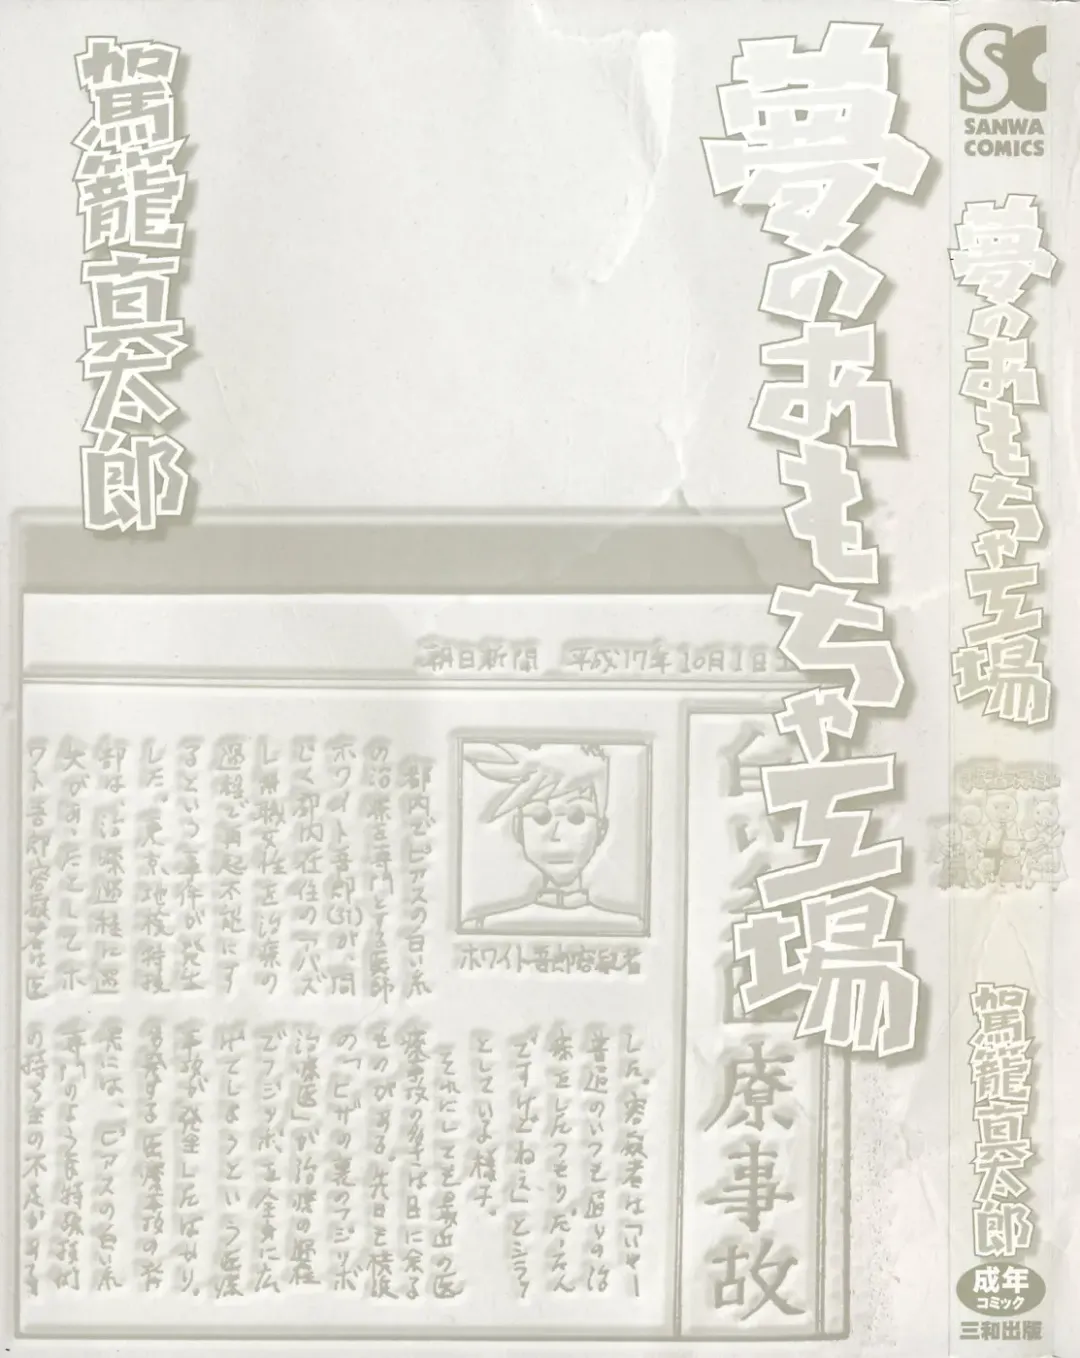 夢のおもちゃ工場
駕籠真太郎
朝日新聞 平成17年10月1日
療事故
ホワイト吾郎容疑者
都内でピアスの白い糸
の治療を専門とする医師
ホワイト吾郎(31)が、同
じく都内在住の
し無職女性を治療の
過程で再起不能にす
るという事件が発生
した。東京地検特捜
部は、治療過程に過
失があったとしてホ
ワイト吾郎容疑者は医
した。容疑者は「いやー
普通のいつも通りの治
療をしたつもりだったん
ですけどねえ」とシラを
としている様子。
それにしても最近の医
療事故の多さは目に余る
ものがある。先日も横浜
の「ヒザの裏のフジツボ
治療医」が治療の過程
でフジツボを全身に広
げてしまうという医療
事故が発生したばかり。
多発する医療事故の背
景には、ピアスの白い糸
専門のような特殊技術
の持ち主の不足がある
SC
SANWA
COMICS
夢のおもちゃ工場
駕籠真太郎
成年
コミック
三和出版